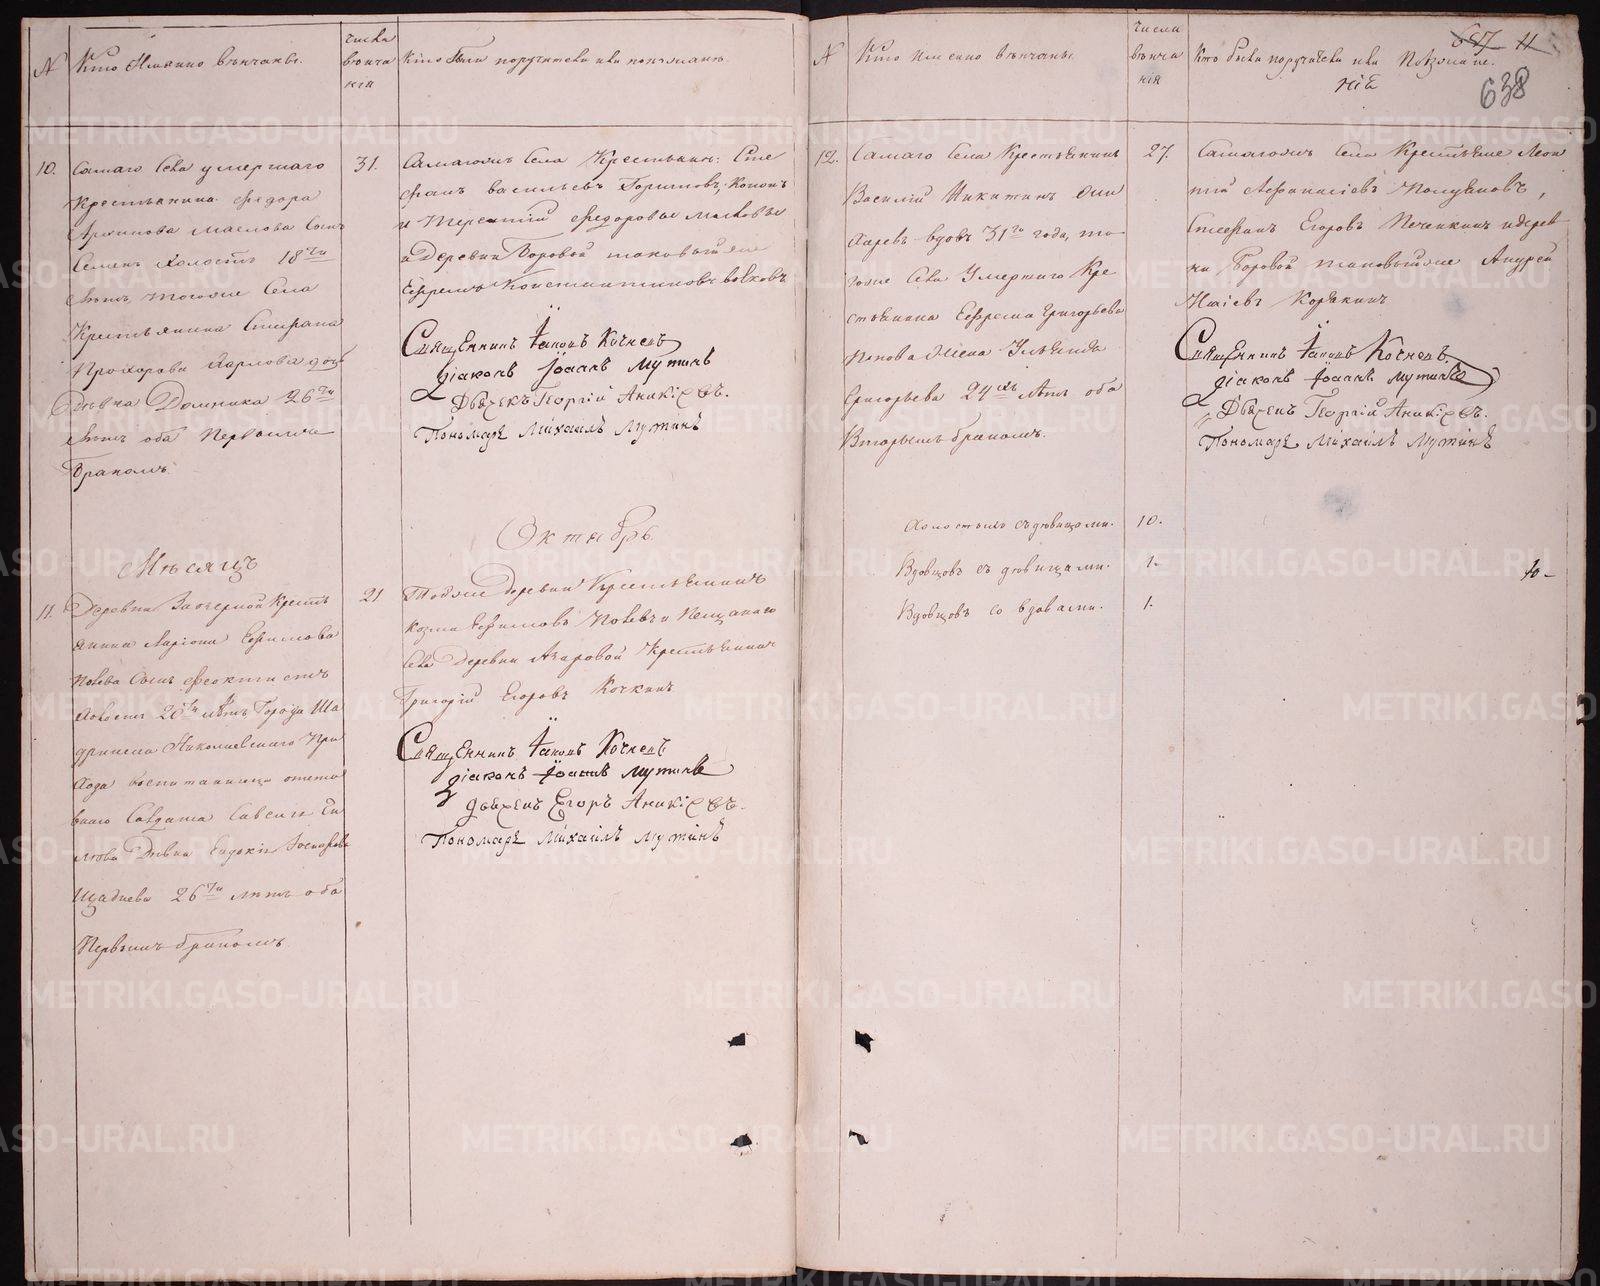 N
Кто Имянно вѣнчаны.
числа
вѣнча
нiя
Кто были поручители или поезжанъ.
10.
Самаго Села умершаго
Крестьянина Федора
Архипова Маслова Сынъ
Семенъ Холостъ 18ти
лѣтъ, тогоже Села
Крестьянина Стефана
Прохорова Карпова дочь
Дѣвка Домника 26ти
лѣтъ оба первымъ
бракомъ.
31.
Самагожъ Села Крестьянинъ Сте
фанъ Васильевъ Горшковъ, Кононъ
и Терентiй Федоровы Масловы
и Деревни Боровой таковыйже
Ефремъ Константиновъ Волковъ
Священникъ Iаковъ Кочневъ
Дiаконъ Iоаннъ Мутинъ
Дьячекъ Георгiй Аникiевъ.
Пономарь Михаилъ Мутинъ
Мѣсяцъ
Октябрь
11.
Деревни Заозерной Кресть
янина Ларiона Ефимова
Сынъ Феоктистъ
Холостъ 20ти лѣтъ Города Ша
дринска Николаевскаго При
хода воспитанница отста
внаго Солдата Савелiя
Дѣвка Евдокiя
26ти лѣтъ оба
Первымъ бракомъ
21
Тояже деревни Крестьянинъ
Козма Ефимовъ и Пещанаго
Села Деревни Азаровой Крестьянинъ
Григорiй Егоровъ Кочкинъ
Священникъ Iаковъ Кочневъ
Дiаконъ Iоаннъ Мутинъ
Дьячекъ Егоръ Аникiевъ.
Пономарь Михаилъ Мутинъ
N
Кто имянно вѣнчаны.
числа
вѣнча
нiя
Кто были поручители или Поѣзжане.
617 11
638
12.
Самаго Села Крестьянинъ
Василiй Никитинъ Ови
Харевъ вдовъ 31го года, то
гоже Села Умершаго Кре
стьянина Ефрема Григорьева
Попова Жена Ульянда
Григорьева 24хъ лѣтъ оба
Вторымъ бракомъ.
27.
Самагожъ Села Крестьяне Леон
тiй Афанасiевъ Полуяновъ,
Стефанъ Егоровъ Печенкинъ и дерев
ни Боровой таковыйже Андрей
Исаiевъ Корякинъ
Священникъ Iаковъ Кочневъ
Дiаконъ Iоаннъ Мутинъ
Дьячекъ Георгiй Аникiевъ.
Пономарь Михаилъ Мутинъ
Холостымъ съ дѣвицами. 10.
Вдовцовъ съ дѣвицами. 1.
Вдовцовъ со вдовами. 1.
METRIKI.GASO-URAL.RU